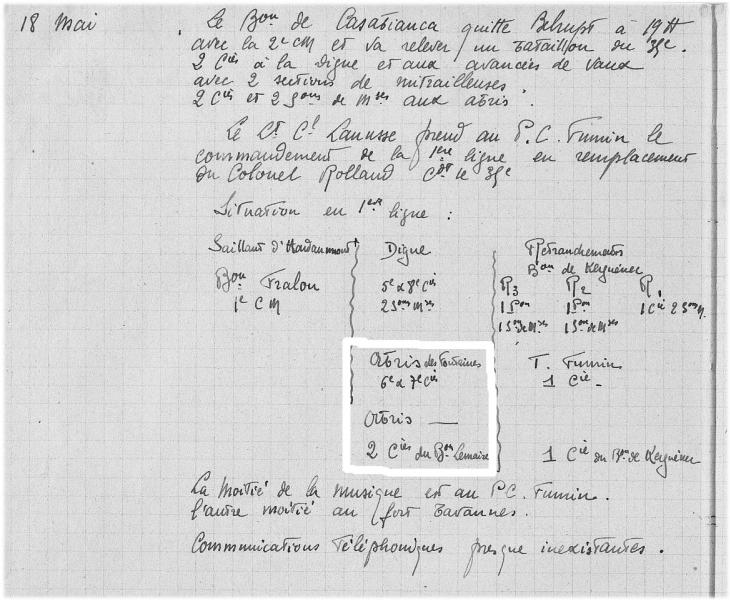 18 Mai
Le Bon de Casabianca quitte Belrupt à 19H
avec la 2e CM et va relever un bataillon du 39e.
2 Cies à la Digue et aux avancées de Vaux
avec 2 sections de mitrailleuses
2 Cies et 2 Sons de Mses aux abris.
Le Lt Cl Lanusse prend au P.C. Fumin le
commandement de la 1ere ligne en remplacement
du Colonel Rolland Cdt le 39e
Situation en 1ere ligne :
Saillant d'Hardaumont
Bon Fralon
1e CM
Digue
5e & 8e Cies
2 Sons Mses
Abris des Fontaines
6e & 7e Cies
Abris —
2 Cies du Bon Lemaire
Retranchements
Bon de Kerguénec
R3 R2 R1
1 Son 1 Son 1 Cie 2 Sons M.
1 Son de Mses 1 Son de Mses
T. Fumin
1 Cie -
1 Cie du Bon de Kerguénec
La moitié de la musique est au P.C. Fumin.
l'autre moitié au fort Tavannes.
Communications Téléphoniques presque inexistantes.